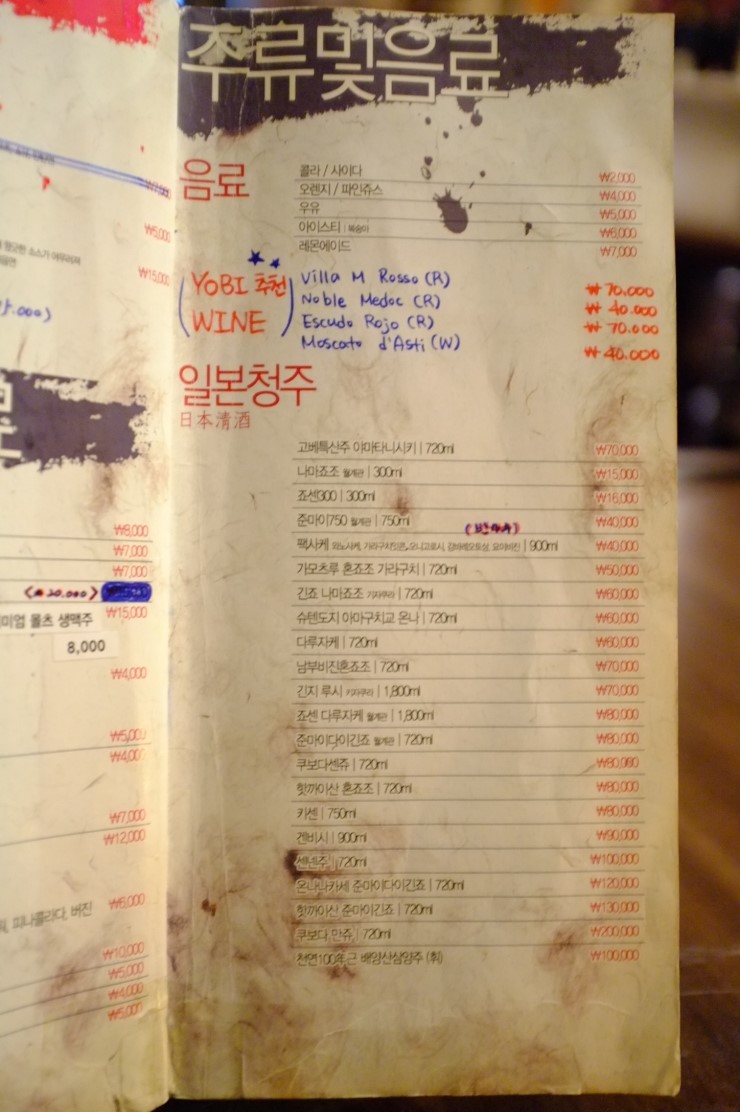 주류및음료
음료
콜라 / 사이다 ₩2,000
오렌지 / 파인쥬스 ₩4,000
우유 ₩5,000
아이스티 | 복숭아 ₩6,000
레몬에이드 ₩7,000
YOBI 추천 WINE
Villa M Rosso (R) ₩70.000
Noble Medoc (R) ₩40.000
Escudo Rojo (R) ₩70.000
Moscato d'Asti (W) ₩40.000
일본청주
日本清酒
고베특산주 야마타니시키 | 720ml ₩70,000
나마죠조 월계관 | 300ml ₩15,000
죠센300 | 300ml ₩16,000
준마이750 월계관 | 750ml ₩40,000
팩사케 | 900ml ₩40,000
가모츠루 혼죠조 가라구치 | 720ml ₩50,000
긴죠 나마죠조 키자쿠라 | 720ml ₩60,000
슈텐도지 아마구치교 온나 | 720ml ₩60,000
다루자케 | 720ml ₩60,000
남부비진혼죠조 | 720ml ₩70,000
긴지 루시 키자쿠라 | 1,800ml ₩70,000
죠센 다루자케 월계관 | 1,800ml ₩80,000
준마이다이긴죠 월계관 | 720ml ₩80,000
쿠보다센쥬 | 720ml ₩80,000
핫까이산 혼죠조 | 720ml ₩80,000
카센 | 750ml ₩80,000
겐비시 | 900ml ₩90,000
센넨주 | 720ml ₩100,000
온나나카세 준마이다이긴죠 | 720ml ₩120,000
핫까이산 준마이긴죠 | 720ml ₩130,000
쿠보다 만쥬 | 720ml ₩200,000
천연100年근 배양산삼양주 (휘) ₩100,000
₩5,000
₩15,000
₩8,000
₩7,000
₩7,000
미엄 몰츠 생맥주 ₩15,000
8,000
₩4,000
₩5,000
₩4,000
₩7,000
₩12,000
피나콜라다, 버진 ₩6,000
₩10,000
₩5,000
₩4,000
₩5,000